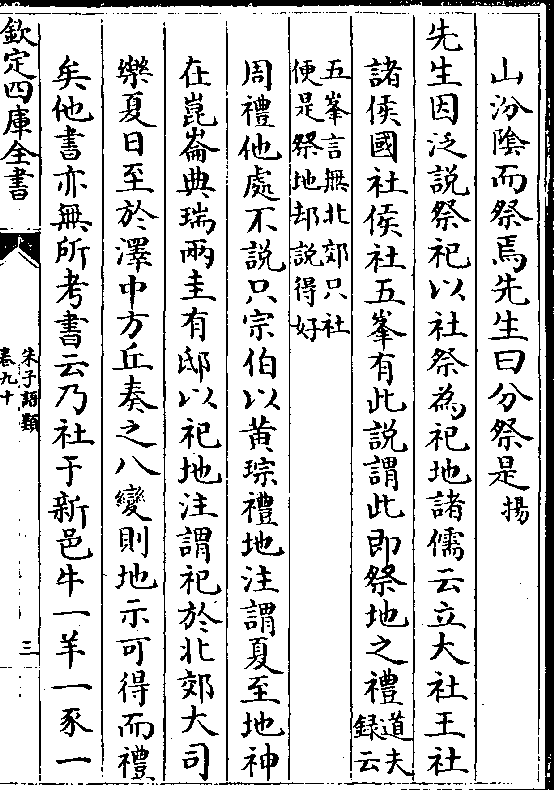 山汾隂而祭焉先生曰分祭是揚
先生因泛説祭祀以社祭為祀地諸儒云立大社王社
諸侯國社侯社五峯有此説謂此即祭地之禮道夫録云
五峯言無北郊只社
便是祭地却説得好
周禮他處不説只宗伯以黄琮禮地注謂夏至地神
在崑崙典瑞兩圭有邸以祀地注謂祀於北郊大司
樂夏日至於澤中方丘奏之八變則地示可得而禮
矣他書亦無所考書云乃社于新邑牛一羊一豕一
欽定四庫全書
朱子語類
卷九十
三